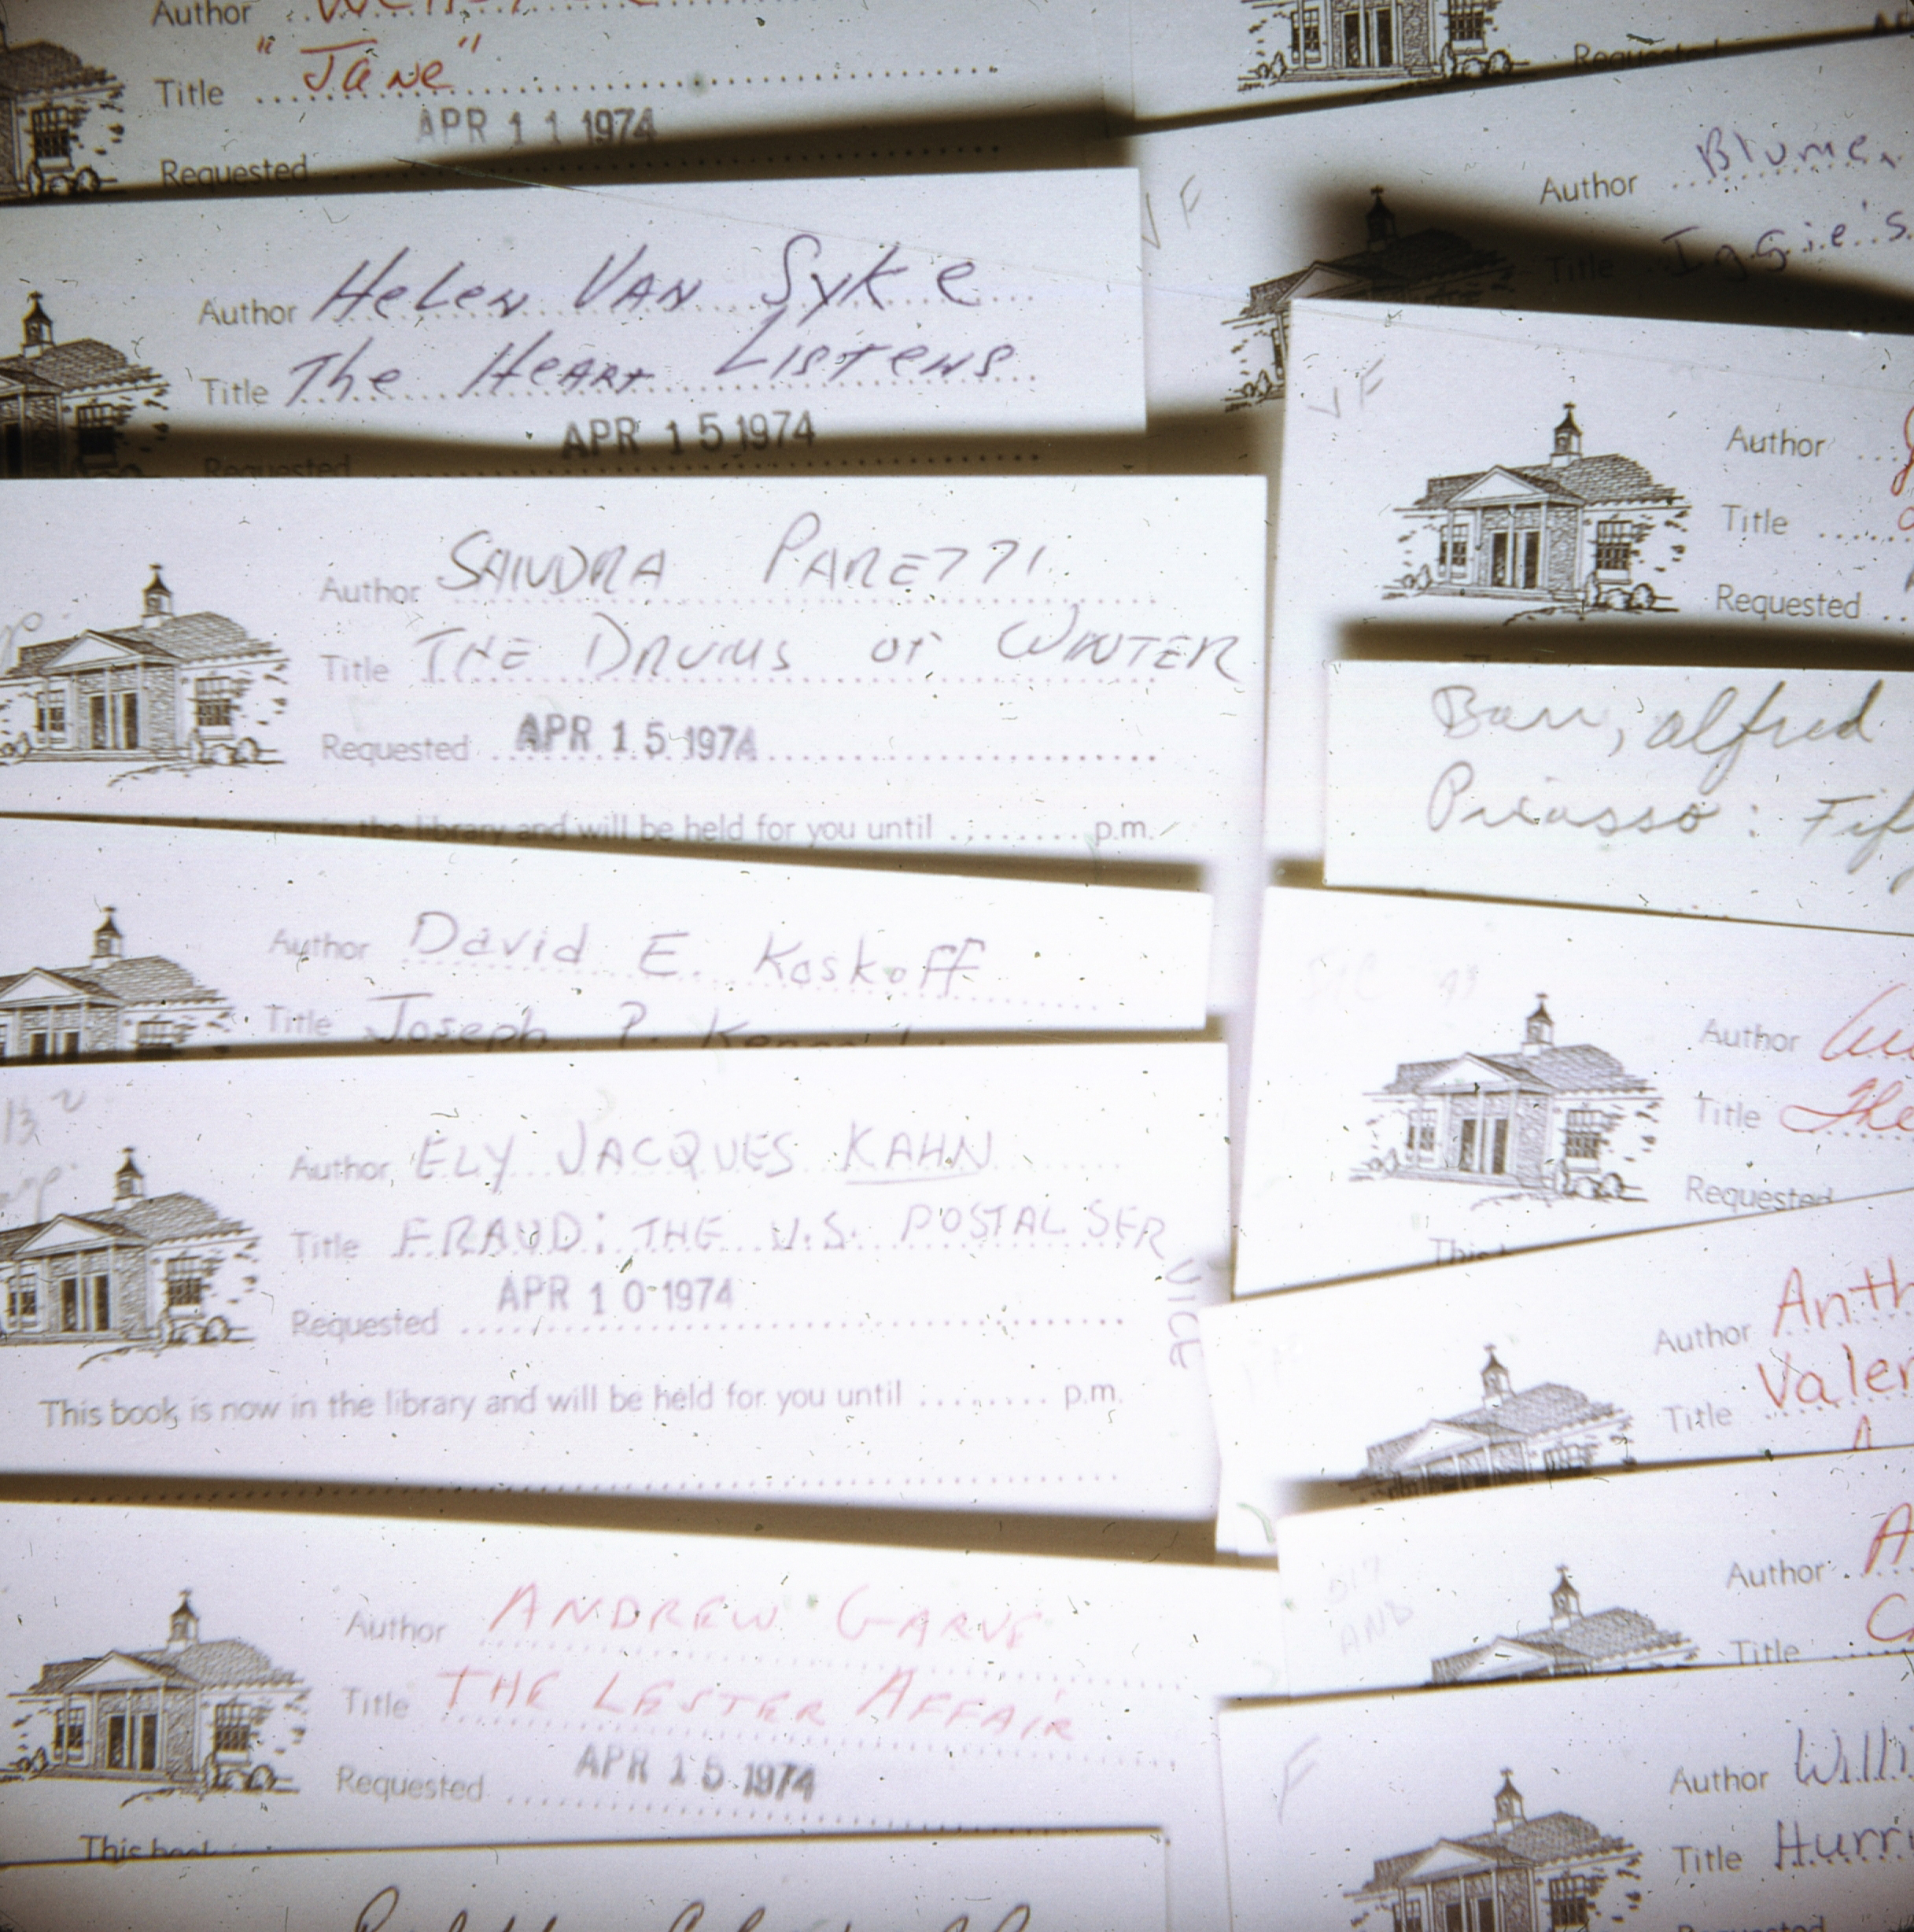 Author
Title "Jane"
APR 11 1974
Requested
Author Helen Van Syke
Title The Heart Listens
APR 15 1974
Requested
Author SANDRA PARETTI
Title THE DRUMS OF WINTER
Requested APR 15 1974
in the library and will be held for you until ........ p.m.
Author David E. Koskoff
Title Joseph P.
132
Author ELY JACQUES KAHN
Title FRAUD: THE U.S. POSTAL SERVICE
APR 10 1974
Requested
This book is now in the library and will be held for you until ........ p.m.
Author ANDREW GARVE
Title THE LESTER AFFAIR
Requested APR 15 1974
This book
Requested
VF
Author Blume,
Title Iggie's
VF
Author
Title
Requested
Barr, Alfred
Picasso: Fif
FIC
Author
Title The
Requested
Author Anth
Title Valer
517
AND
Author A
Title C
F
Author Willi
Title Hurri